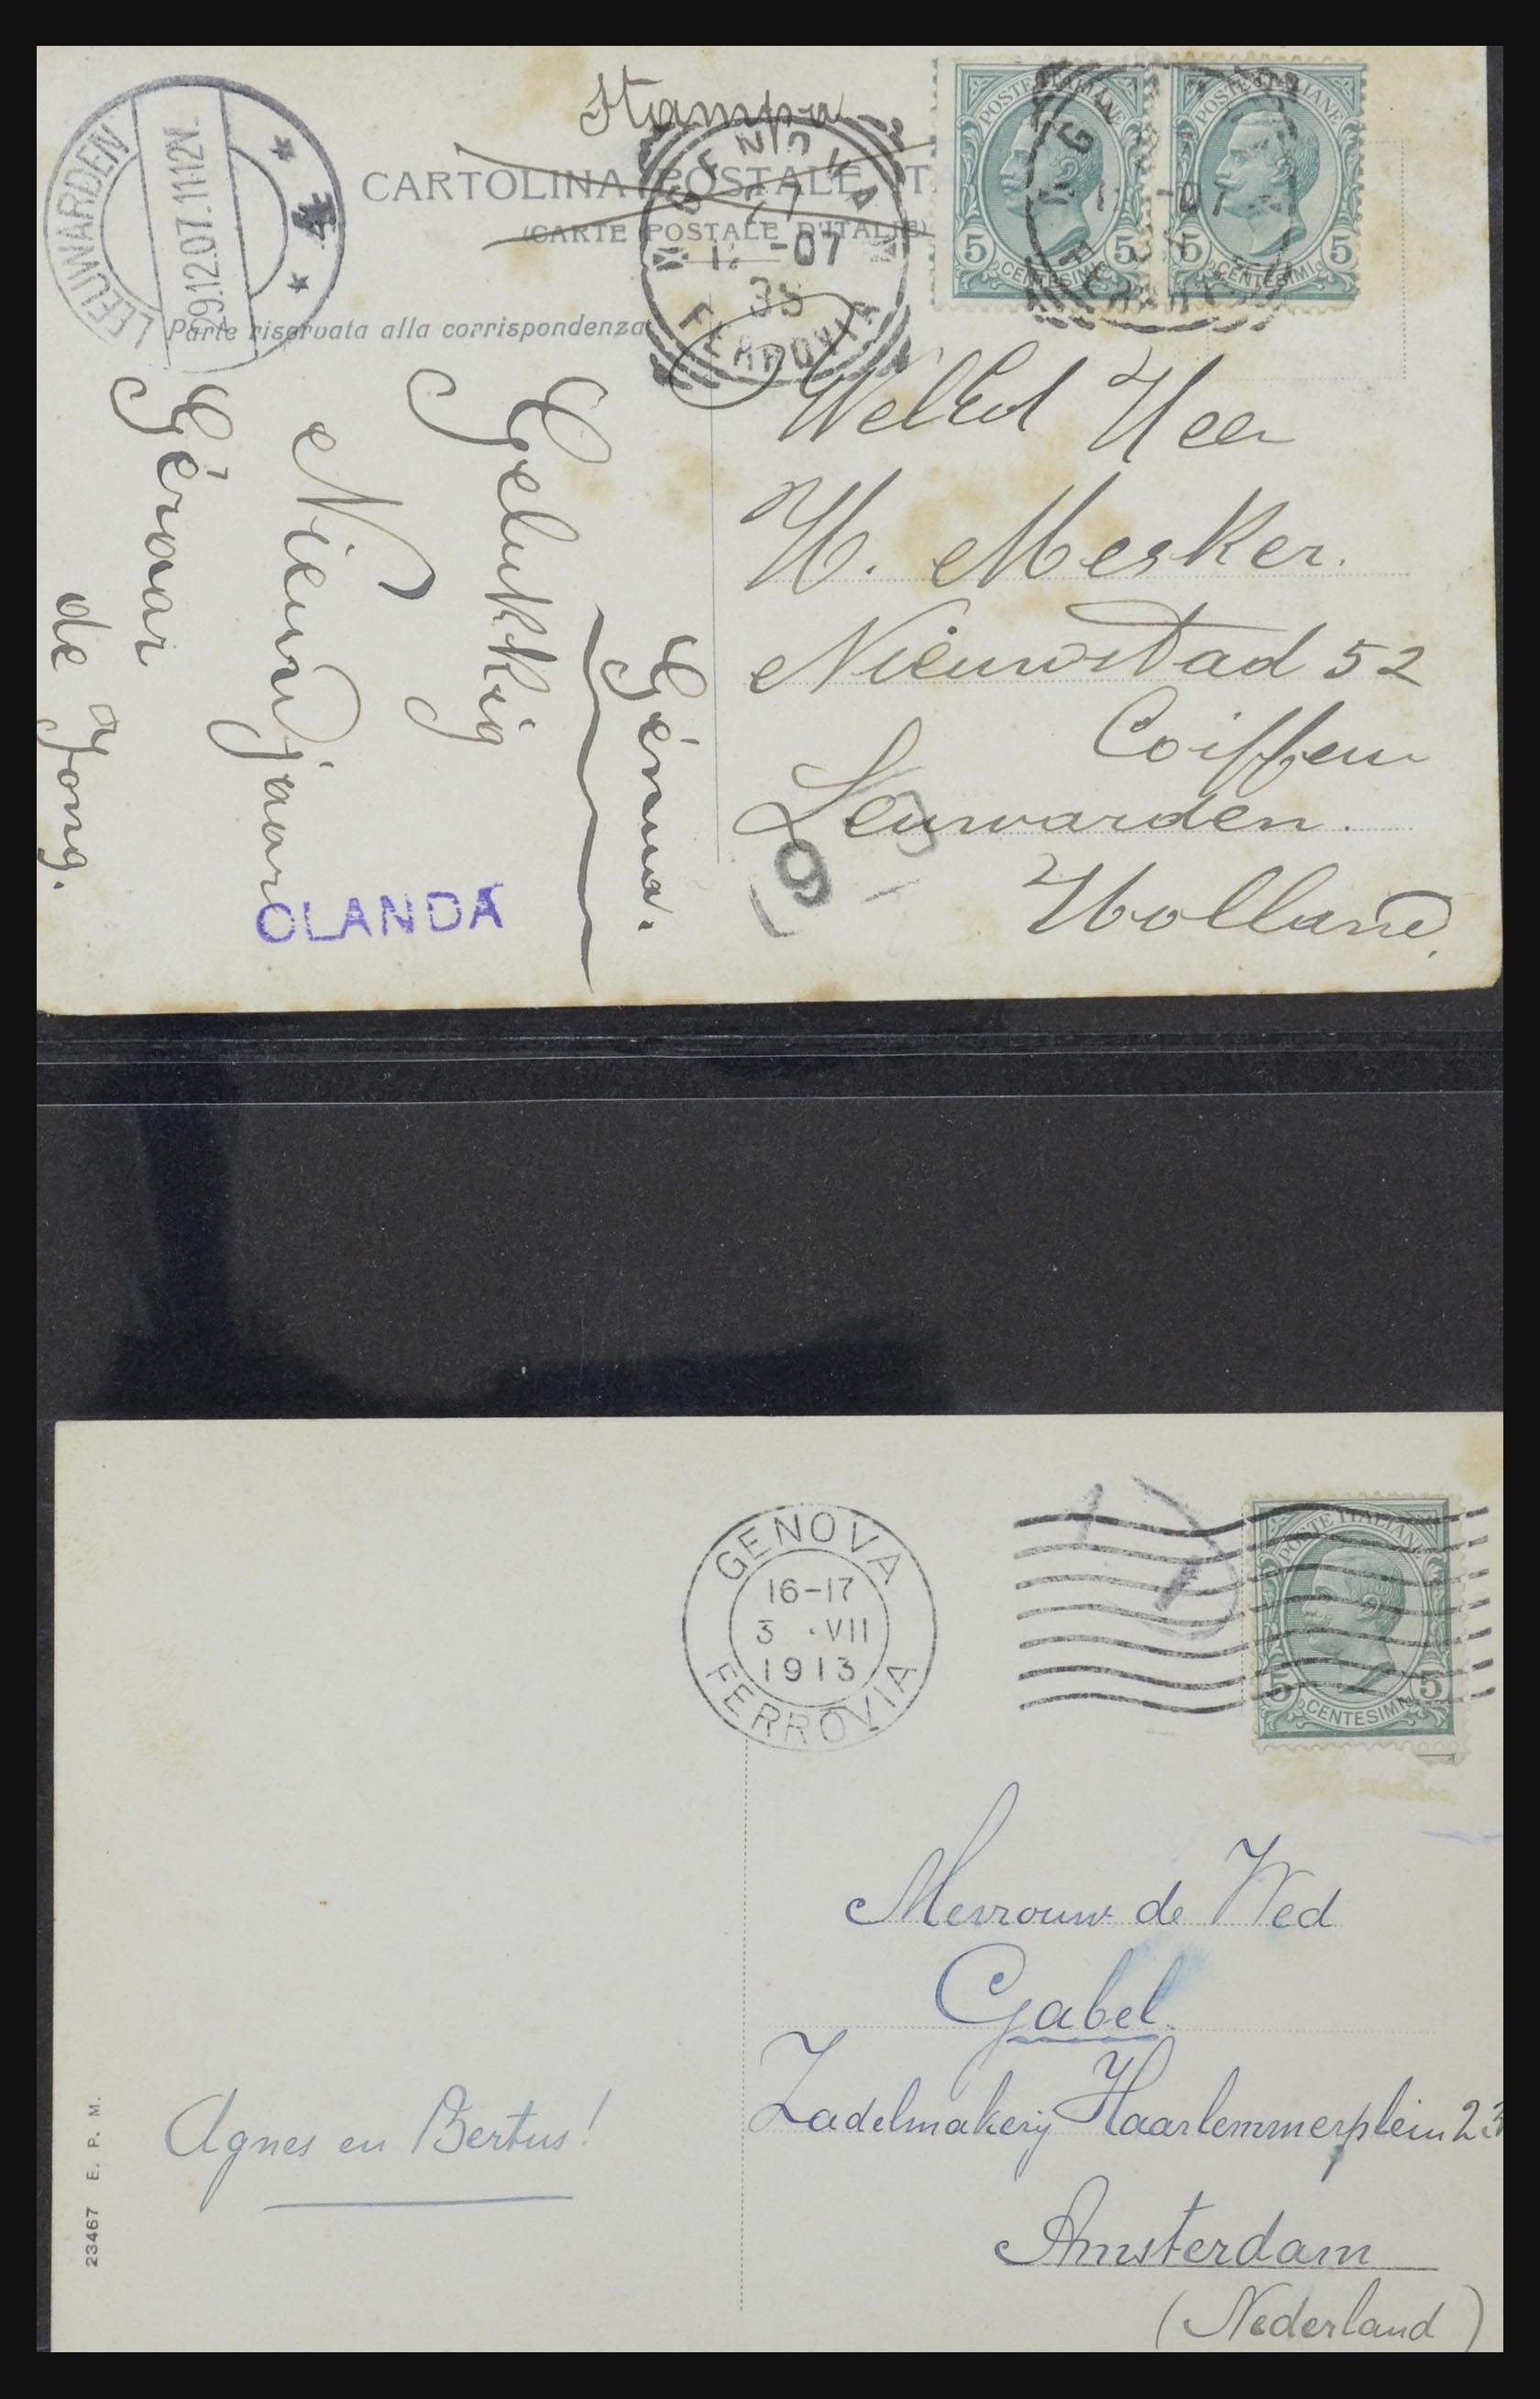 Stampa
CARTOLINA POSTALE
(CARTE POSTALE D'ITALIE)
LEEUWARDEN
9.12.07.11-12V.
4
GENOVA
-07
38
FERROVIA
POSTE ITALIANE
5 5
CENTESIMI
POSTE ITALIANE
5 5
CENTESIMI
-07
Parte riservata alla corrispondenza
Génua.
Gelukkig
Nieuwjaar
Géraar
de Jong.
OLANDA
WelEd Heer
H. Mesker.
Nieuwstad 52
Coiffeur
Leeuwarden.
Holland.
9
GENOVA
16-17
3 ·VII
1913
FERROVIA
POSTE ITALIANE
5 5
CENTESIMI
Mevrouw de Wed
Gabel.
Zadelmakerij Haarlemmerplein 23
Amsterdam
(Nederland)
Agnes en Bertus!
23467 E. P. M.